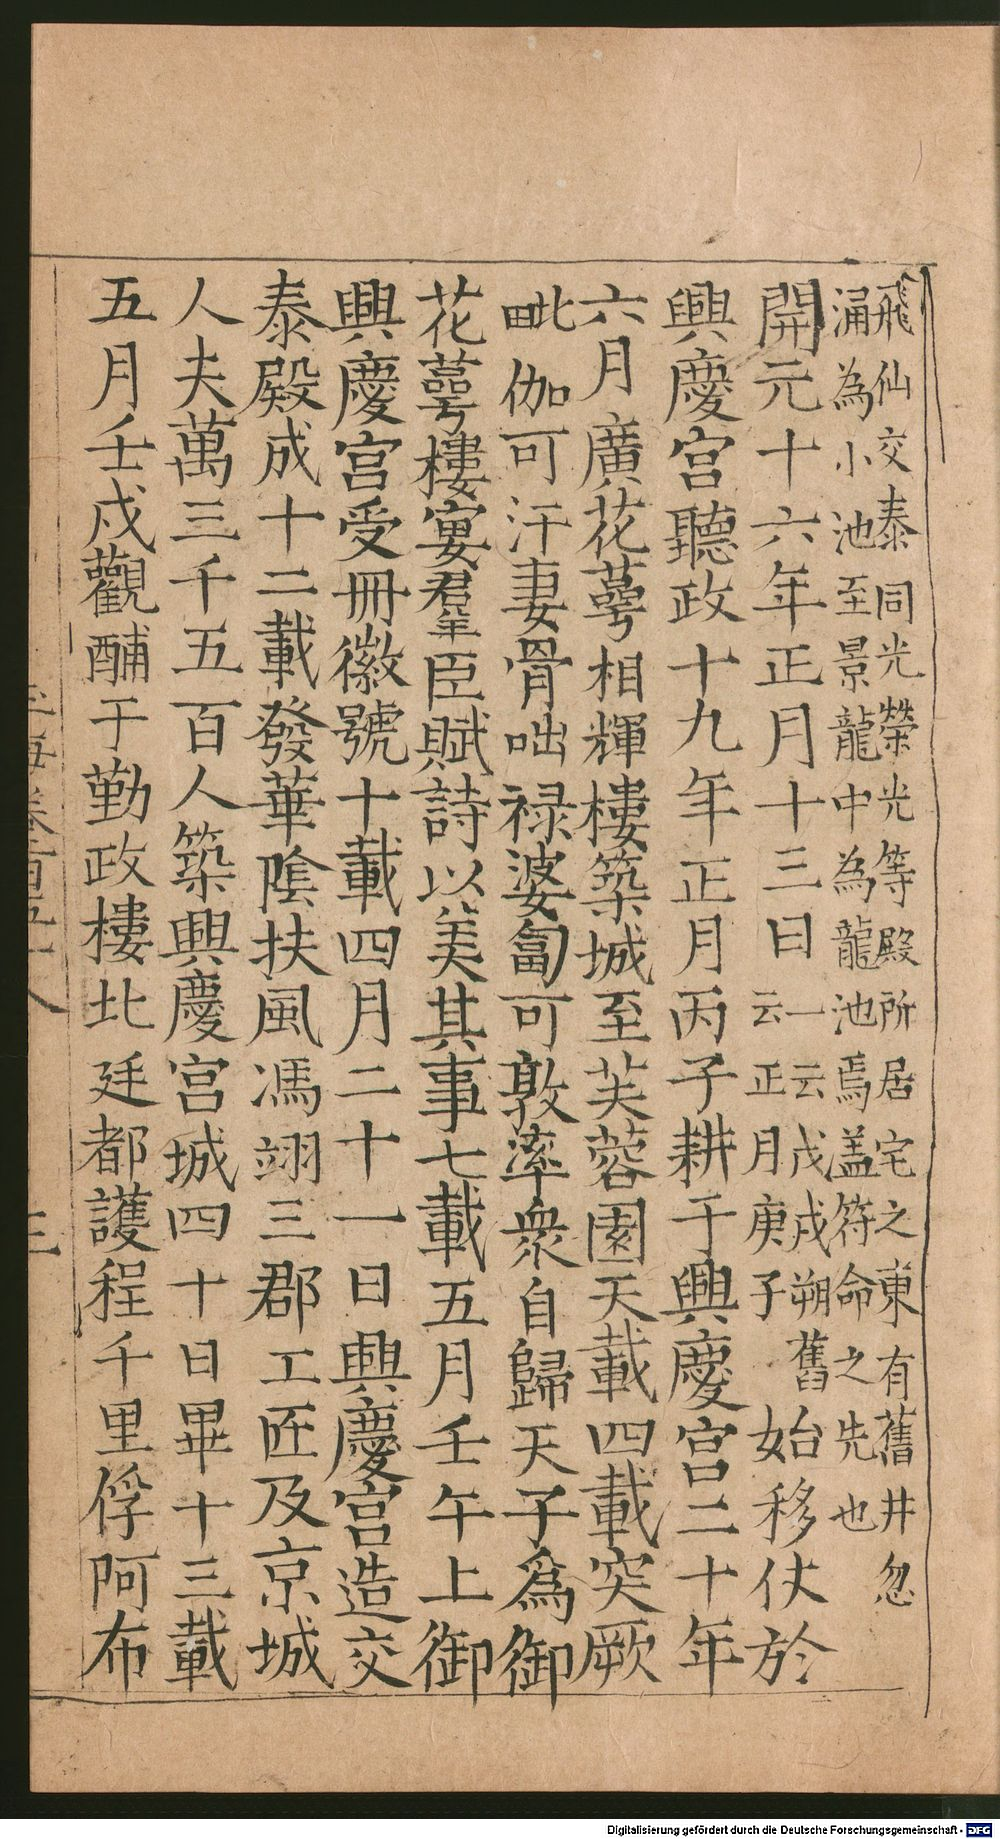 飛仙交泰同光榮光等殿所居宅之東有舊井忽
涌為小池至景龍中為龍池焉盖符命之先也
開元十六年正月十三日一云戊戌朔舊云正月庚子始移仗於
興慶宫聽政十九年正月丙子耕于興慶宫二十年
六月廣花蕚相輝樓築城至芙蓉園天載四載突厥
毗伽可汗妻骨咄禄婆匐可敦率衆自歸天子爲御
花蕚樓宴羣臣賦詩以美其事七載五月壬午上御
興慶宫受冊徽號十載四月二十一日興慶宫造交
泰殿成十二載發華陰扶風馮翊三郡工匠及京城
人夫萬三千五百人築興慶宫城四十日畢十三載
五月壬戌觀酺于勤政樓北廷都護程千里俘阿布
玉海卷百五十八
三
Digitalisierung gefördert durch die Deutsche Forschungsgemeinschaft - DFG